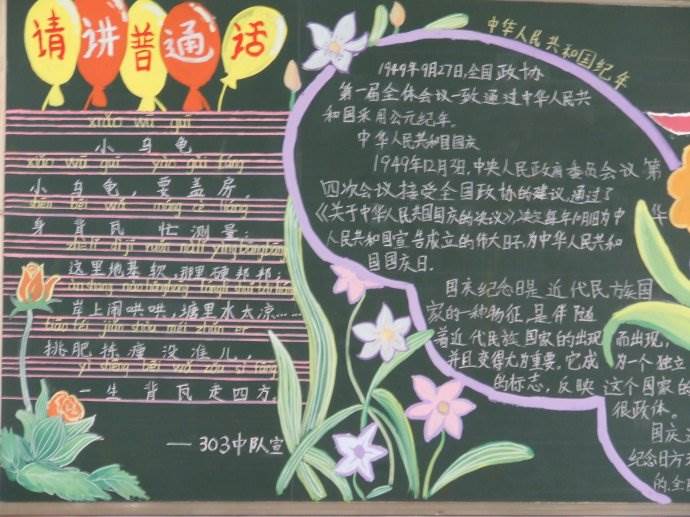 请讲普通话
xiǎo wū guī
小乌龟
xiǎo wū guī yào gài fáng
小乌龟，要盖房，
shēn bēi wǎ máng cè liáng
身背瓦 忙测量；
这里地基软，那里硬邦邦；
岸上闹哄哄，塘里水太凉……
挑肥拣瘦没准儿，
yī shēng bēi wǎ zǒu sì fāng
一生背瓦走四方。
——303中队宣
中华人民共和国纪年
1949年9月27日，全国政协
第一届全体会议一致通过中华人民共
和国采用公元纪年。
中华人民共和国国庆
1949年12月3日，中央人民政府委员会议 第
四次会议接受全国政协的建议，通过了
《关于中华人民共和国国庆的决议》，决定每年10月1日为中 华
人民共和国宣告成立的伟大日子，为中华人民共和
国国庆日。
国庆纪念日是近代民族国
家的一种特征，是伴随
着近代民族国家的出现 而出现，
并且变得尤为重要。它成 为一个独立
的标志，反映 这个国家的
很政体。
国庆
纪念日方
的，全